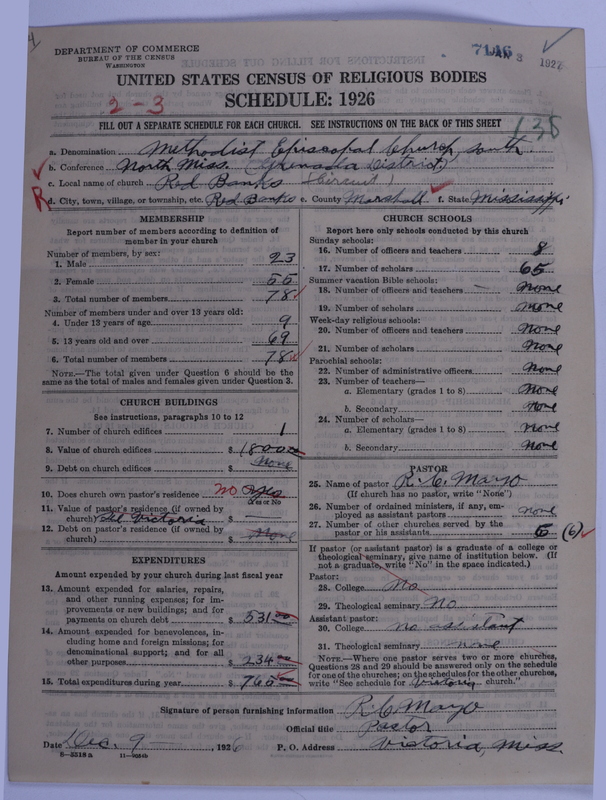 DEPARTMENT OF COMMERCE
BUREAU OF THE CENSUS
WASHINGTON
7146
JAN 3 1927
UNITED STATES CENSUS OF RELIGIOUS BODIES
2-3
SCHEDULE: 1926
FILL OUT A SEPARATE SCHEDULE FOR EACH CHURCH. SEE INSTRUCTIONS ON THE BACK OF THIS SHEET
135
a. Denomination Methodist Episcopal Church, South
b. Conference North Miss. (Grenada District)
c. Local name of church Red Banks (Circuit)
R
d. City, town, village, or township, etc. Red Banks e. County Marshall f. State Mississippi
MEMBERSHIP
Report number of members according to definition of
member in your church
Number of members, by sex:
1. Male 23
2. Female 55
3. Total number of members 78
Number of members under and over 13 years old:
4. Under 13 years of age 9
5. 13 years old and over 69
6. Total number of members 78
NOTE.—The total given under Question 6 should be the
same as the total of males and females given under Question 3.
CHURCH BUILDINGS
See instructions, paragraphs 10 to 12
7. Number of church edifices 1
8. Value of church edifices $ 1800
9. Debt on church edifices $ None
10. Does church own pastor's residence no yes
(Yes or No
11. Value of pastor's residence (if owned by
church) at Victoria $
12. Debt on pastor's residence (if owned by
church) $ None
EXPENDITURES
Amount expended by your church during last fiscal year
13. Amount expended for salaries, repairs,
and other running expenses; for im-
provements or new buildings; and for
payments on church debt $ 531
14. Amount expended for benevolences, in-
cluding home and foreign missions; for
denominational support; and for all
other purposes $ 234
15. Total expenditures during year $ 765
CHURCH SCHOOLS
Report here only schools conducted by this church
Sunday schools:
16. Number of officers and teachers 8
17. Number of scholars 65
Summer vacation Bible schools:
18. Number of officers and teachers None
19. Number of scholars None
Week-day religious schools:
20. Number of officers and teachers None
21. Number of scholars None
Parochial schools:
22. Number of administrative officers None
23. Number of teachers—
a. Elementary (grades 1 to 8) None
b. Secondary None
24. Number of scholars—
a. Elementary (grades 1 to 8) None
b. Secondary None
PASTOR
25. Name of pastor R. C. Mayo
(If church has no pastor, write "None")
26. Number of ordained ministers, if any, em-
ployed as assistant pastors none
27. Number of other churches served by the
pastor or his assistants 6 (6)
If pastor (or assistant pastor) is a graduate of a college or
theological seminary, give name of institution below. (If
not a graduate, write "No" in the space indicated.)
Pastor:
28. College No
29. Theological seminary No
Assistant pastor:
30. College no assistant
31. Theological seminary none
NOTE.—Where one pastor serves two or more churches,
Questions 28 and 29 should be answered only on the schedule
for one of the churches; on the schedules for the other churches,
write "See schedule for Victoria church."
Signature of person furnishing information R. C. Mayo
Official title Pastor
Date Dec. 9, 1926 P. O. Address Victoria, Miss.
8-5518a 11-9054b